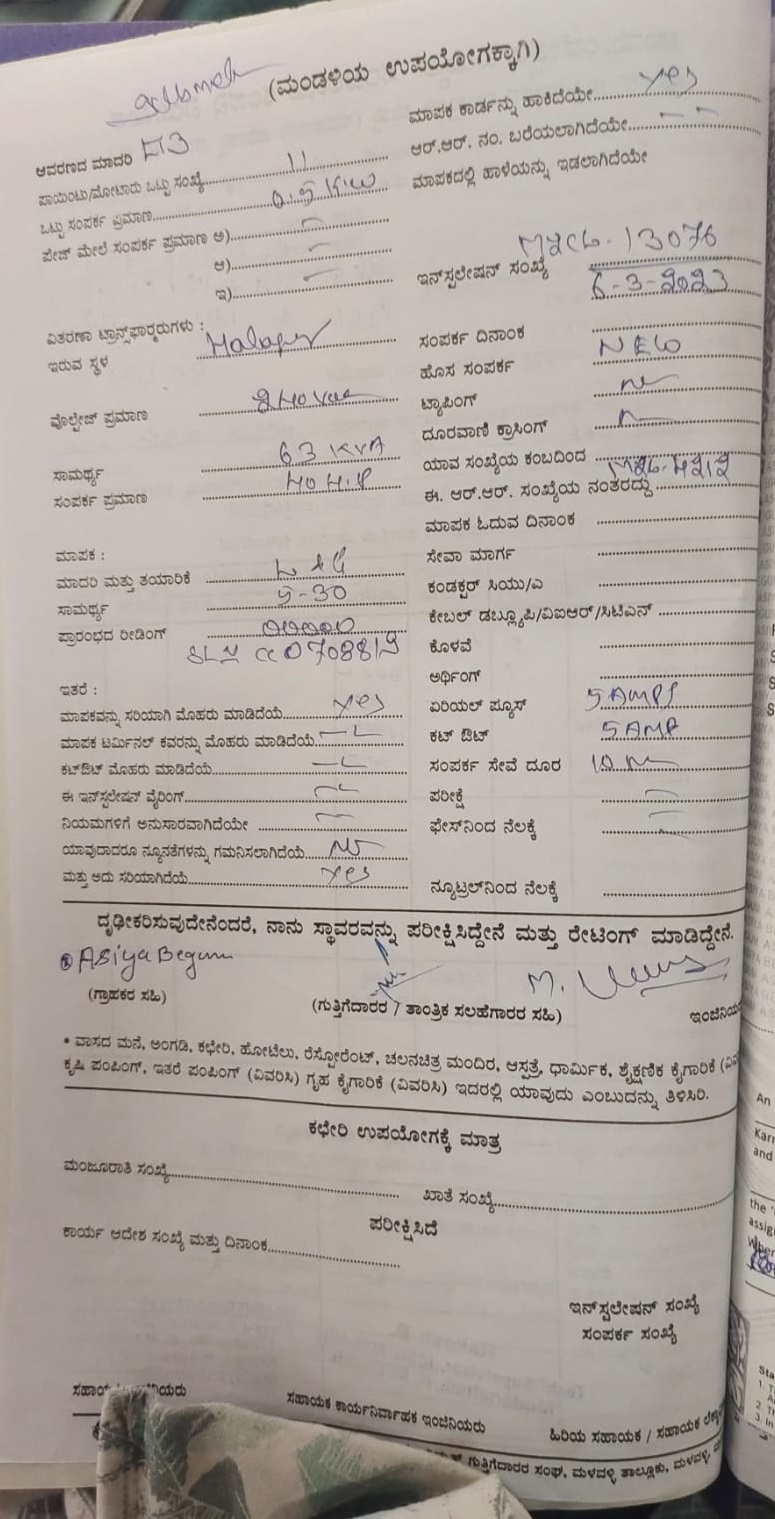 (ಮಂಡಳಿಯ ಉಪಯೋಗಕ್ಕಾಗಿ)
ಮಾಪಕ ಕಾರ್ಡನ್ನು ಹಾಕಿದೆಯೇ yes
ಆವರಣದ ಮಾದರಿ
ಆರ್.ಆರ್. ನಂ. ಬರೆಯಲಾಗಿದೆಯೇ
ಪಾಯಿಂಟು/ಮೋಟಾರು ಒಟ್ಟು ಸಂಖ್ಯೆ 11
ಮಾಪಕದಲ್ಲಿ ಹಾಳೆಯನ್ನು ಇಡಲಾಗಿದೆಯೇ
ಒಟ್ಟು ಸಂಪರ್ಕ ಪ್ರಮಾಣ 0.5 KW
ಪೇಜ್ ಮೇಲೆ ಸಂಪರ್ಕ ಪ್ರಮಾಣ ಅ)
ಆ)
ಇ)
ಇನ್‌ಸ್ಟಲೇಷನ್ ಸಂಖ್ಯೆ 13076
6-3-2023
ವಿತರಣಾ ಟ್ರಾನ್ಸ್‌ಫಾರ್ಮರುಗಳು :
ಇರುವ ಸ್ಥಳ
ಸಂಪರ್ಕ ದಿನಾಂಕ
ಹೊಸ ಸಂಪರ್ಕ NEW
ವೊಲ್ಟೇಜ್ ಪ್ರಮಾಣ
ಟ್ಯಾಪಿಂಗ್
ದೂರವಾಣಿ ಕ್ರಾಸಿಂಗ್
ಸಾಮರ್ಥ್ಯ 63 KVA
ಯಾವ ಸಂಖ್ಯೆಯ ಕಂಬದಿಂದ
ಸಂಪರ್ಕ ಪ್ರಮಾಣ 40 H.P
ಈ. ಆರ್.ಆರ್. ಸಂಖ್ಯೆಯ ನಂತರದ್ದು
ಮಾಪಕ ಓದುವ ದಿನಾಂಕ
ಮಾಪಕ :
ಸೇವಾ ಮಾರ್ಗ
ಮಾದರಿ ಮತ್ತು ತಯಾರಿಕೆ L & G
ಕಂಡಕ್ಟರ್ ಸಿಯು/ಎ
ಸಾಮರ್ಥ್ಯ 5-30
ಕೇಬಲ್ ಡಬ್ಲ್ಯೂಪಿ/ವಿಐಆರ್/ಸಿಟಿಎನ್
ಪ್ರಾರಂಭದ ರೀಡಿಂಗ್ 00000
ಕೊಳವೆ
ಅರ್ಥಿಂಗ್
ಇತರೆ :
ಮಾಪಕವನ್ನು ಸರಿಯಾಗಿ ಮೊಹರು ಮಾಡಿದೆಯೆ yes
ಏರಿಯಲ್ ಪ್ಯೂಸ್ 5 AMPS
ಮಾಪಕ ಟರ್ಮಿನಲ್ ಕವರನ್ನು ಮೊಹರು ಮಾಡಿದೆಯೆ
ಕಟ್ ಔಟ್ 5 AMP
ಕಟ್‌ಔಟ್ ಮೊಹರು ಮಾಡಿದೆಯೆ
ಸಂಪರ್ಕ ಸೇವೆ ದೂರ 10 m
ಈ ಇನ್‌ಸ್ಟಲೇಷನ್ ವೈರಿಂಗ್
ಪರೀಕ್ಷೆ
ನಿಯಮಗಳಿಗೆ ಅನುಸಾರವಾಗಿದೆಯೇ
ಫೇಸ್‌ನಿಂದ ನೆಲಕ್ಕೆ
ಯಾವುದಾದರೂ ನ್ಯೂನತೆಗಳನ್ನು ಗಮನಿಸಲಾಗಿದೆಯೆ No
ಮತ್ತು ಅದು ಸರಿಯಾಗಿದೆಯೆ yes
ನ್ಯೂಟ್ರಲ್‌ನಿಂದ ನೆಲಕ್ಕೆ
ದೃಢೀಕರಿಸುವುದೇನೆಂದರೆ, ನಾನು ಸ್ಥಾವರವನ್ನು ಪರೀಕ್ಷಿಸಿದ್ದೇನೆ ಮತ್ತು ರೇಟಿಂಗ್ ಮಾಡಿದ್ದೇನೆ.
Asiya Begum
(ಗ್ರಾಹಕರ ಸಹಿ)
(ಗುತ್ತಿಗೆದಾರರ / ತಾಂತ್ರಿಕ ಸಲಹೆಗಾರರ ಸಹಿ)
* ವಾಸದ ಮನೆ, ಅಂಗಡಿ, ಕಛೇರಿ, ಹೋಟೆಲು, ರೆಸ್ಟೋರೆಂಟ್, ಚಲನಚಿತ್ರ ಮಂದಿರ, ಆಸ್ಪತ್ರೆ, ಧಾರ್ಮಿಕ, ಶೈಕ್ಷಣಿಕ ಕೈಗಾರಿಕೆ
ಕೃಷಿ ಪಂಪಿಂಗ್, ಇತರೆ ಪಂಪಿಂಗ್ (ವಿವರಿಸಿ) ಗೃಹ ಕೈಗಾರಿಕೆ (ವಿವರಿಸಿ) ಇದರಲ್ಲಿ ಯಾವುದು ಎಂಬುದನ್ನು ತಿಳಿಸಿರಿ.
ಕಛೇರಿ ಉಪಯೋಗಕ್ಕೆ ಮಾತ್ರ
ಮಂಜೂರಾತಿ ಸಂಖ್ಯೆ
ಖಾತೆ ಸಂಖ್ಯೆ
ಪರೀಕ್ಷಿಸಿದೆ
ಕಾರ್ಯ ಆದೇಶ ಸಂಖ್ಯೆ ಮತ್ತು ದಿನಾಂಕ
ಇನ್‌ಸ್ಟಲೇಷನ್ ಸಂಖ್ಯೆ
ಸಂಪರ್ಕ ಸಂಖ್ಯೆ
ಸಹಾಯಕ ಕಾರ್ಯನಿರ್ವಾಹಕ ಇಂಜಿನಿಯರು
ಹಿರಿಯ ಸಹಾಯಕ / ಸಹಾಯಕ
ಗುತ್ತಿಗೆದಾರರ ಸಂಘ, ಮಳವಳ್ಳಿ ತಾಲ್ಲೂಕು, ಮಳವಳ್ಳಿ,